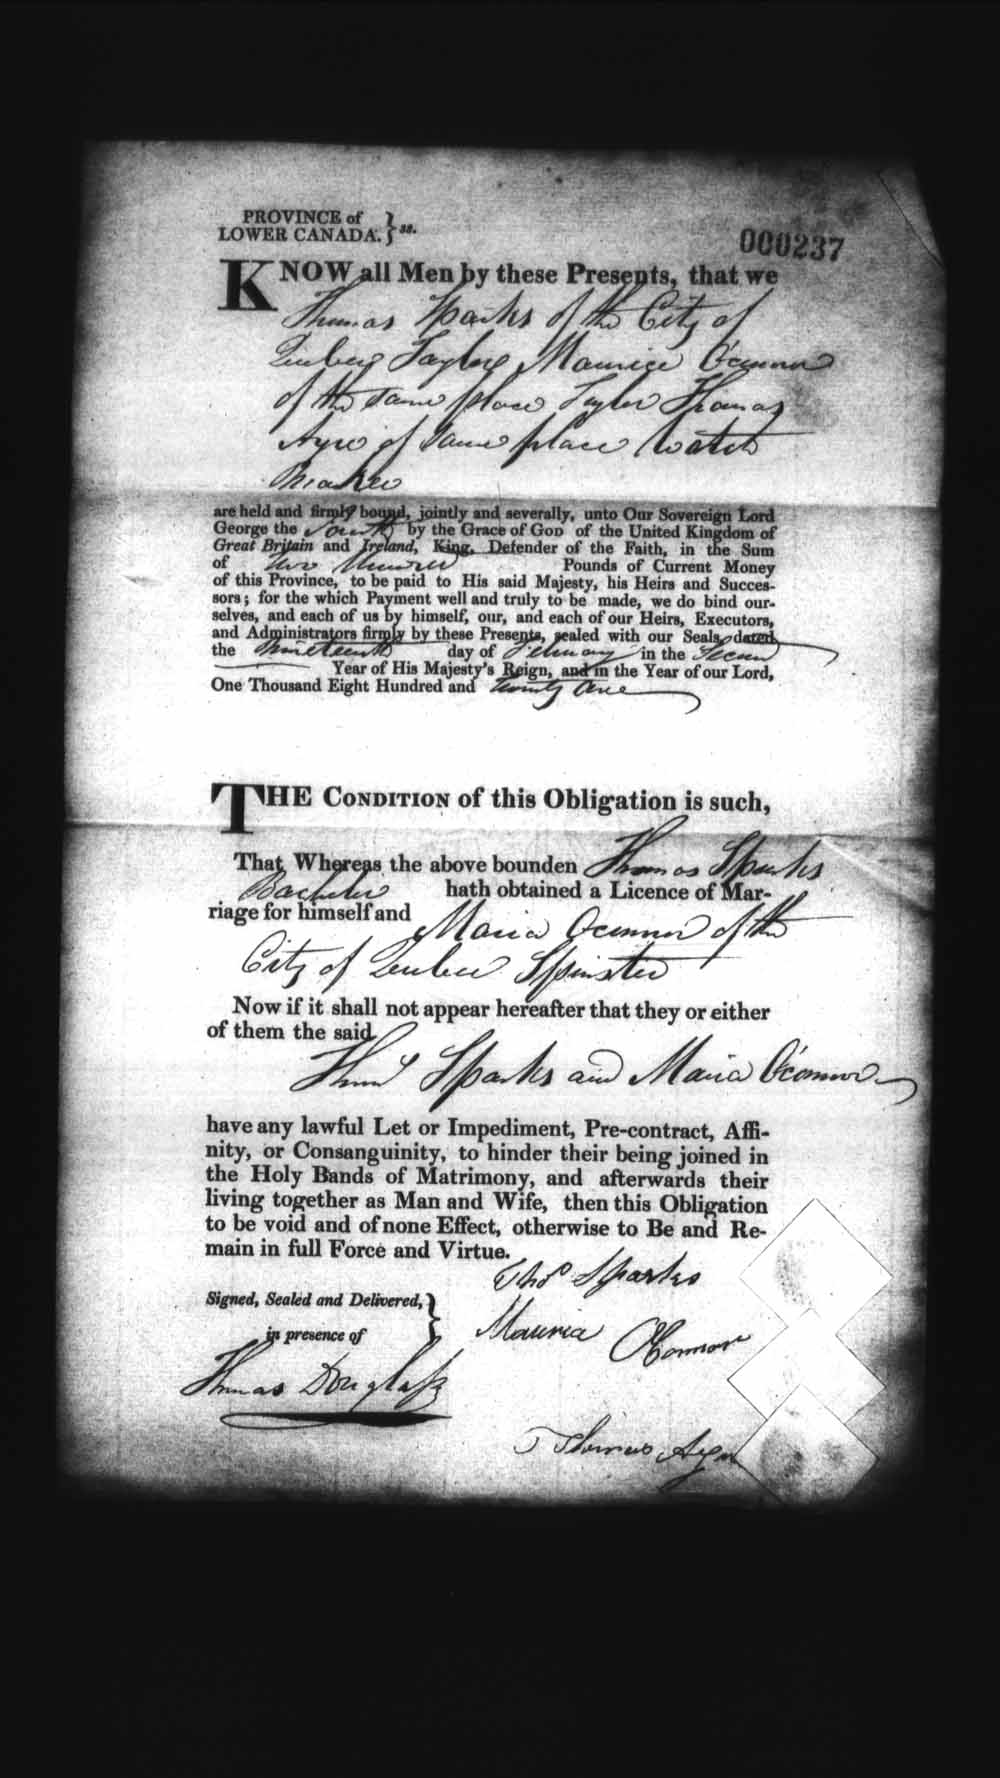 PROVINCE of
LOWER CANADA. } ss.
000237
KNOW all Men by these Presents, that we
Thomas Sparks of the City of
Quebec Taylor Maurice O'Connor
of the same place Taylor Thomas
Ayre of same place Watch
Maker
are held and firmly bound, jointly and severally, unto Our Sovereign Lord
George the Fourth by the Grace of GOD of the United Kingdom of
Great Britain and Ireland, King, Defender of the Faith, in the Sum
of Two Hundred Pounds of Current Money
of this Province, to be paid to His said Majesty, his Heirs and Succes-
sors; for the which Payment well and truly to be made, we do bind our-
selves, and each of us by himself, our, and each of our Heirs, Executors,
and Administrators firmly by these Presents, sealed with our Seals, dated
the Nineteenth day of February in the Second
Year of His Majesty's Reign, and in the Year of our Lord,
One Thousand Eight Hundred and twenty One
THE CONDITION of this Obligation is such,
That Whereas the above bounden Thomas Sparks
Bachelor hath obtained a Licence of Mar-
riage for himself and Maria Oconnor of the
City of Quebec Spinster
Now if it shall not appear hereafter that they or either
of them the said
Thos Sparks and Maria O'Connor
have any lawful Let or Impediment, Pre-contract, Affi-
nity, or Consanguinity, to hinder their being joined in
the Holy Bands of Matrimony, and afterwards their
living together as Man and Wife, then this Obligation
to be void and of none Effect, otherwise to Be and Re-
main in full Force and Virtue.
Thos Sparks
Signed, Sealed and Delivered, }
in presence of
Maurice OConnor
Thomas Douglass
Thomas Ayre